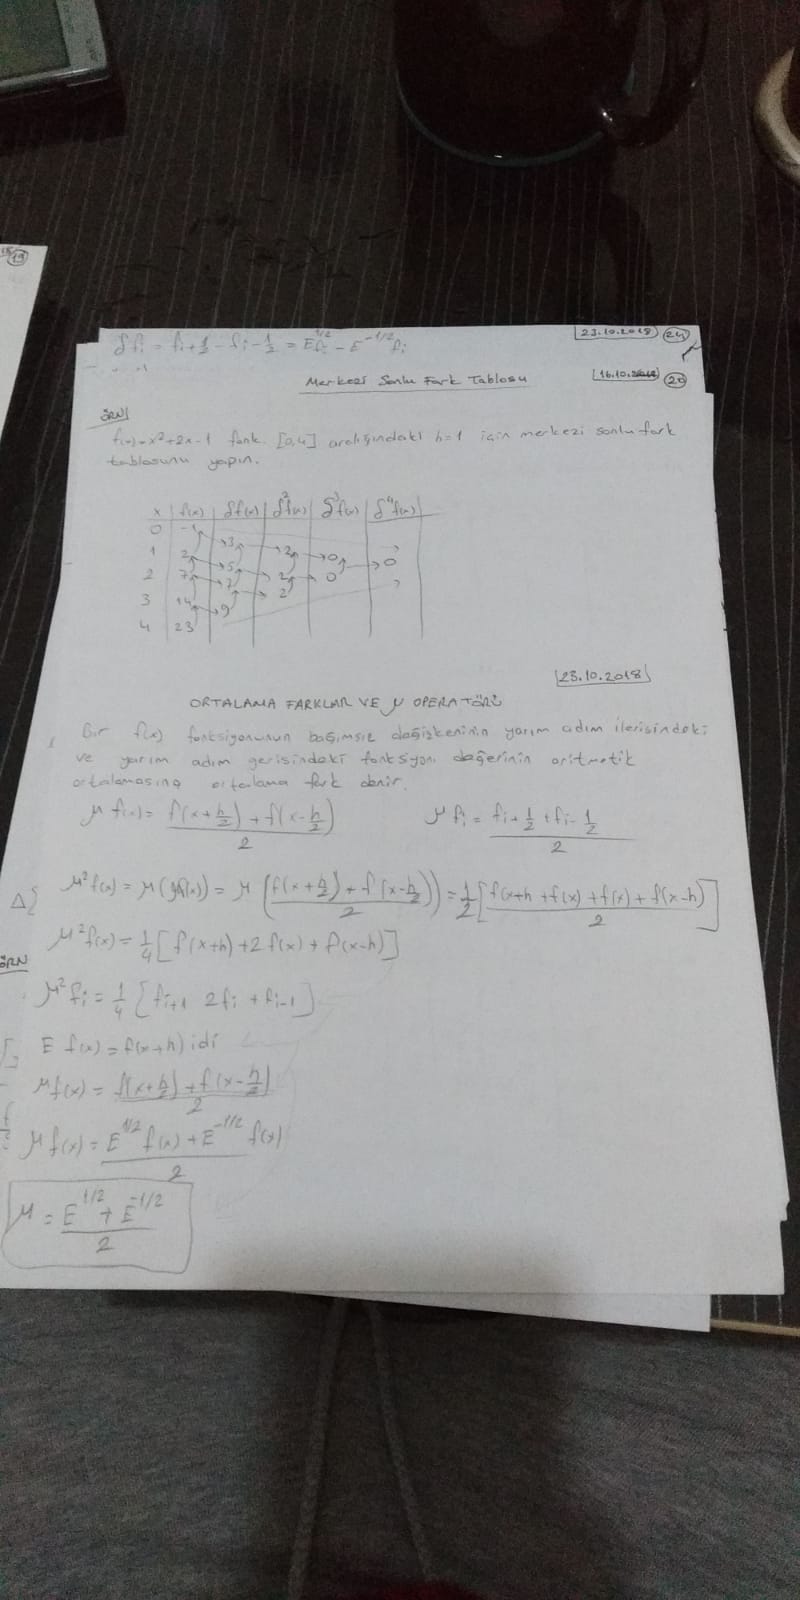 19
23.10.2018 24
δfi = fi+1/2 - fi-1/2 = E^1/2 fi - E^-1/2 fi
16.10.2018 20
Merkezi Sonlu Fark Tablosu
ÖRN/
f(x)=x²+2x-1 fonk. [0,4] aralığındaki h=1 için merkezi sonlu fark
tablosunu yapın.
x f(x) δf(x) δ²f(x) δ³f(x) δ⁴f(x)
0 -1
3
1 2 2 0
5 0
2 7 2 0
7
3 14 2
9
4 23
23.10.2018
ORTALAMA FARKLAR VE μ OPERATÖRÜ
Bir f(x) fonksiyonunun bağımsız değişkeninin yarım adım ilerisindeki
ve yarım adım gerisindeki fonksiyon değerinin aritmetik
ortalamasına ortalama fark denir.
μ f(x) = (f(x+h/2) + f(x-h/2))/2 μ fi = (fi+1/2 + fi-1/2)/2
μ²f(x) = μ(μf(x)) = μ((f(x+h/2) + f(x-h/2))/2) = 1/2[(f(x+h + f(x) + f(x) + f(x-h))/2]
μ²f(x) = 1/4 [f(x+h) + 2f(x) + f(x-h)]
ÖRN
μ²fi = 1/4 [fi+1 2fi + fi-1]
E f(x) = f(x+h) idi
μf(x) = (f(x+h/2) + f(x-h/2))/2
μ f(x) = (E^1/2 f(x) + E^-1/2 f(x))/2
μ = (E^1/2 + E^-1/2)/2